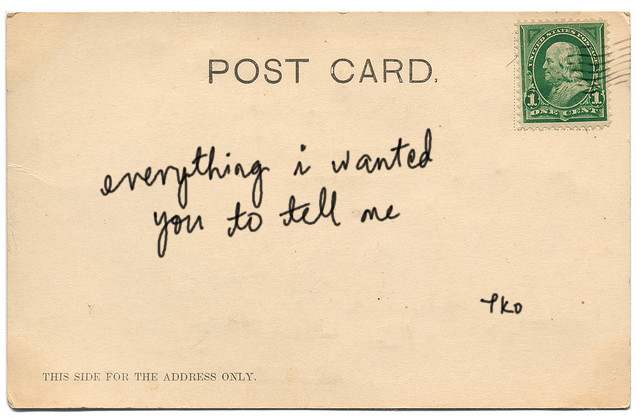 POST CARD.
UNITED STATES POSTAGE
1 1
ONE CENT
everything i wanted
you to tell me
TKO
THIS SIDE FOR THE ADDRESS ONLY.